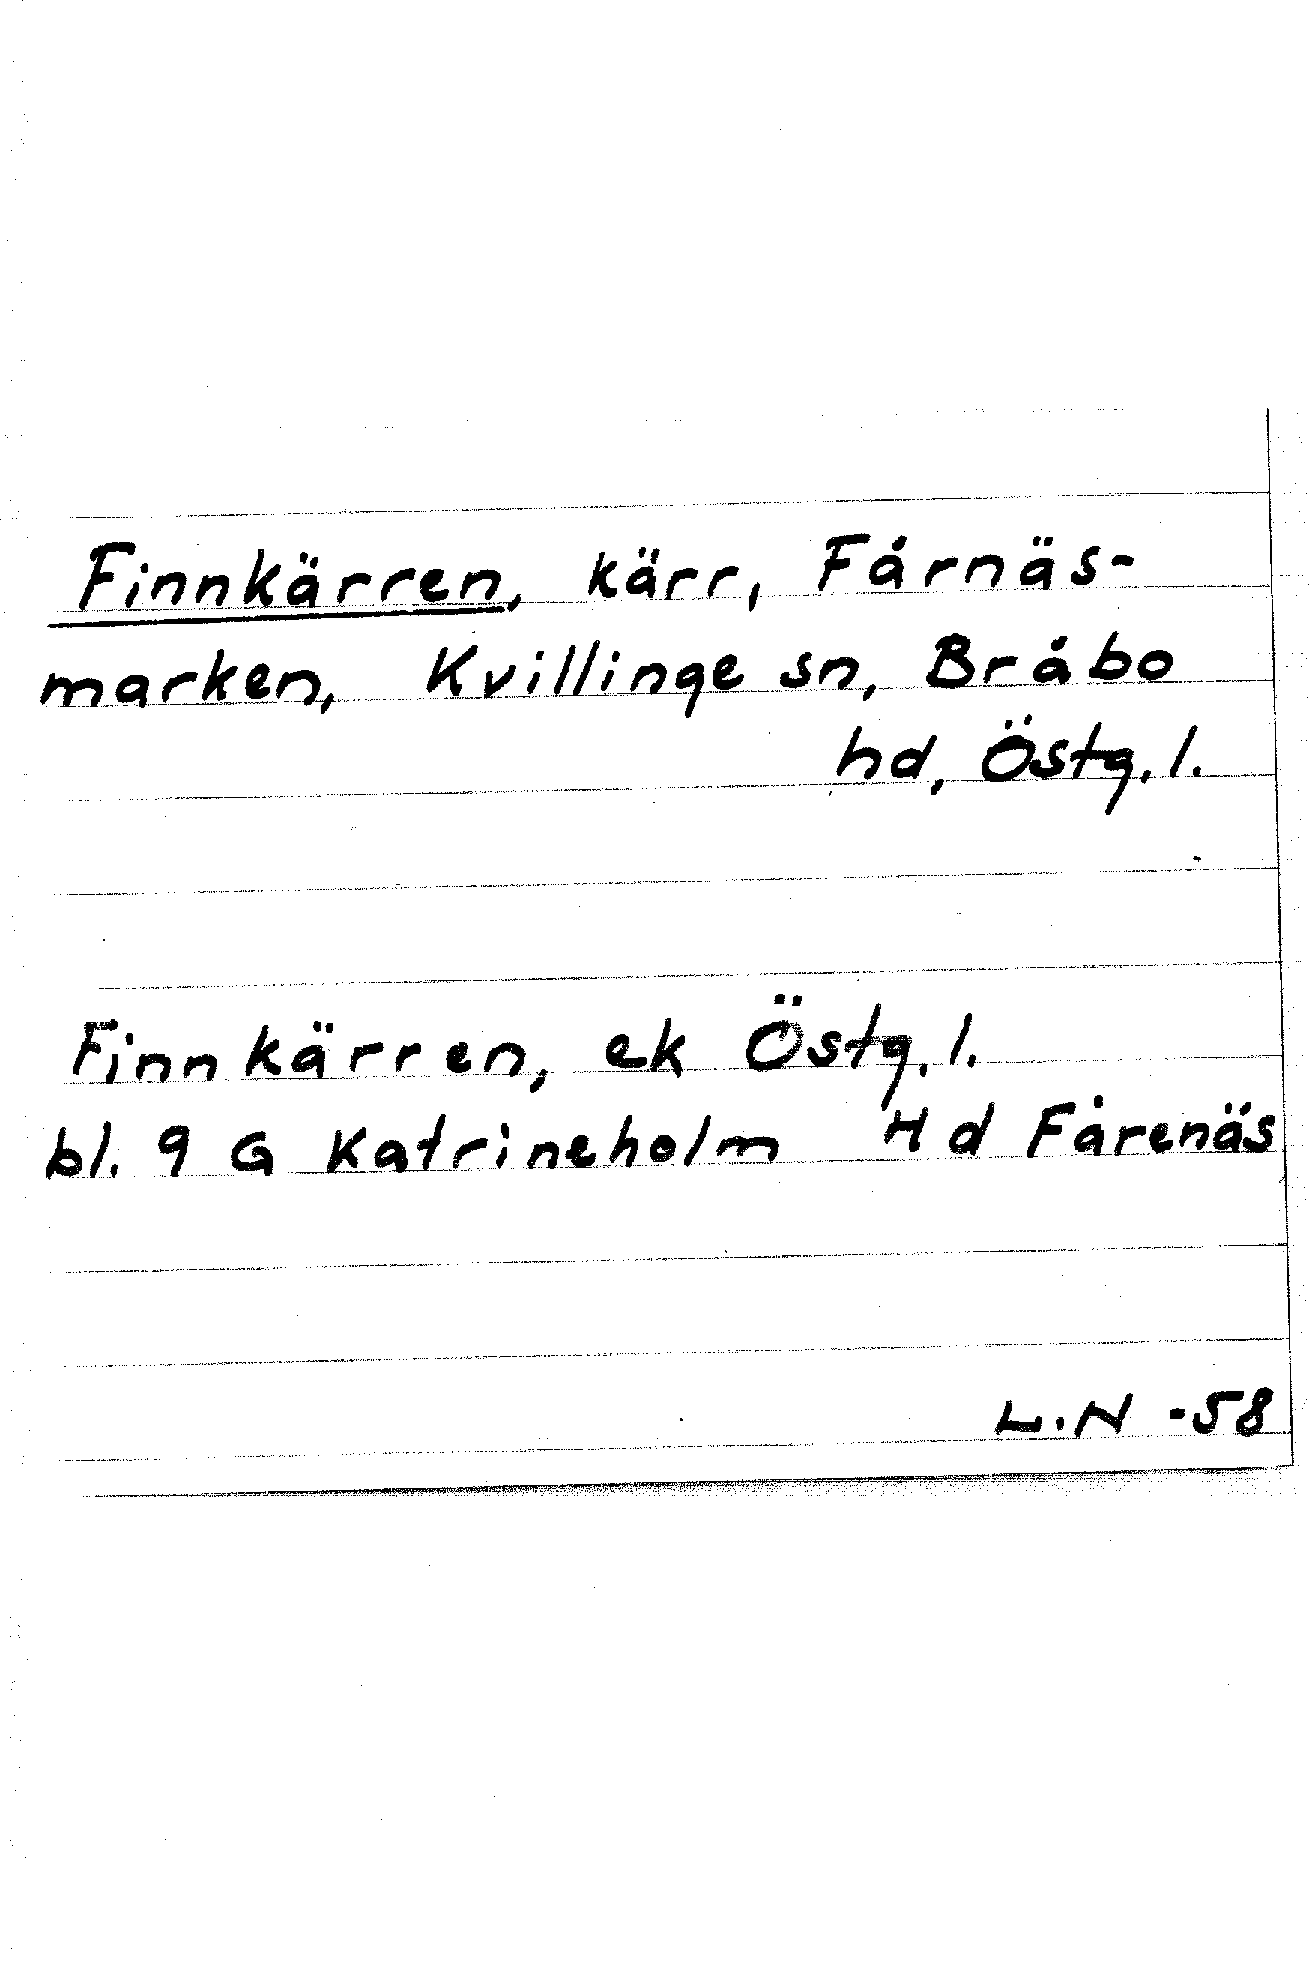 Finnkärren, kärr, Fårnäs-
marken, Kvillinge sn, Bråbo
hd, Östg. l.
Finnkärren, ek Östg. l.
bl. 9 G Katrineholm Hd Fårenäs
L.N -58